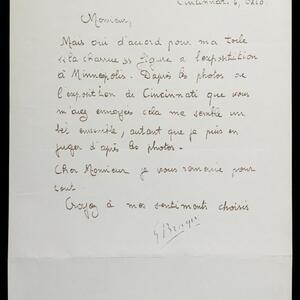 Cincinnati 6, Ohio.
Monsieur,
Mais oui d'accord pour ma toile
"la charrue" figure a l'exposition
à Minneapolis. D'après les photos de
l'exposition de Cincinnati que vous
m'avez envoyées cela me semble un
bel ensemble, autant que je puis en
juger d'après les photos.
Cher Monsieur je vous remercie pour
tout.
Croyez à mes sentiments choisis
G Braque